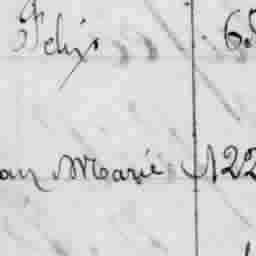 Felix " " 6
an Marie 122